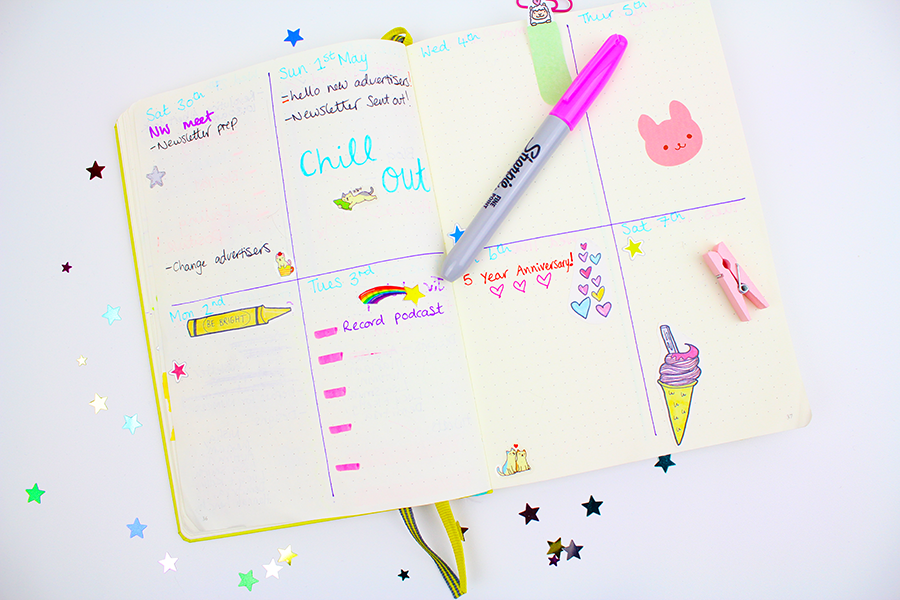 Sat 30th
NW meet
-Newsletter prep
-Change advertisers
Sun 1st May
-hello new advertisers!
-Newsletter Sent out!
Chill
out
Mon 2nd
(BE BRIGHT)
Tues 3rd
Record podcast
Wed 4th
Sharpie
FINE
Thur 5th
6th
5 Year Anniversary!
Sat 7th
37